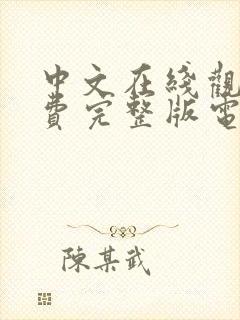 中文在綫觀
費完整版電
陳某武